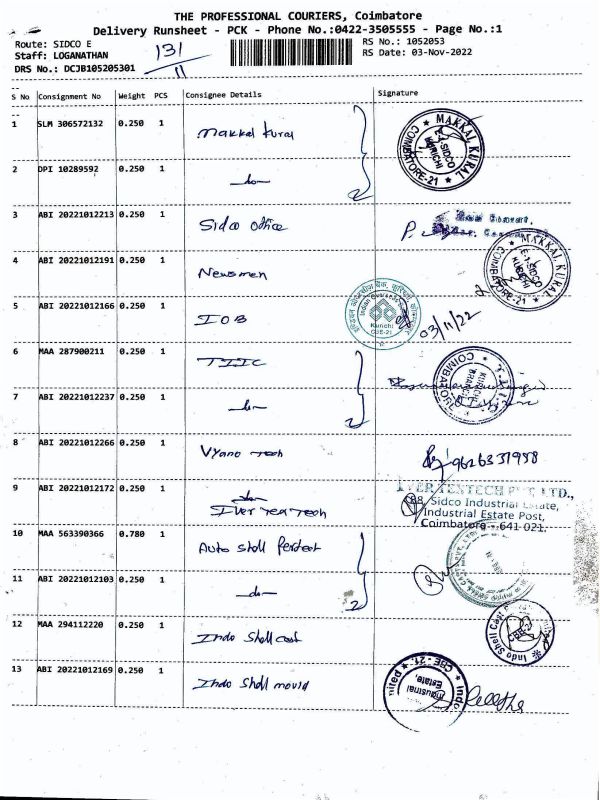 THE PROFESSIONAL COURIERS, Coimbatore
Delivery Runsheet - PCK - Phone No.:0422-3505555 - Page No.:1
Route: SIDCO E
Staff: LOGANATHAN
DRS No.: DCJB105205301
131
11
RS No.: 1052053
RS Date: 03-Nov-2022
S No Consignment No Weight PCS Consignee Details Signature
1 SLM 306572132 0.250 1 Makkal Kural
MAKKAL KURAL
E-1-SIDCO
KURICHI
COIMBATORE-21
2 DPI 10289592 0.250 1 -do-
3 ABI 20221012213 0.250 1 Sidco Office
4 ABI 20221012191 0.250 1 Newsmen
MAKKAL KURAL
E-1-SIDCO
KURICHI
COIMBATORE-21
5 ABI 20221012166 0.250 1 IOB
Indian Overseas
Kurichi
CBE-21
03/11/22
6 MAA 287900211 0.250 1 TIIC
7 ABI 20221012237 0.250 1 -do-
KURICHI
BRANCH
8 ABI 20221012266 0.250 1 Vyano Tech
9626331998
9 ABI 20221012172 0.250 1
Sidco Industrial Estate,
Industrial Estate Post,
Coimbatore - 641 021.
10 MAA 563390366 0.780 1 Auto Shell
11 ABI 20221012103 0.250 1 -do-
12 MAA 294112220 0.250 1 Indo Shell cast
Indo Shell Cast
CBE-21
13 ABI 20221012169 0.250 1 Indo Shell mould
CBE - 21.
Indo
Industrial
Estate,